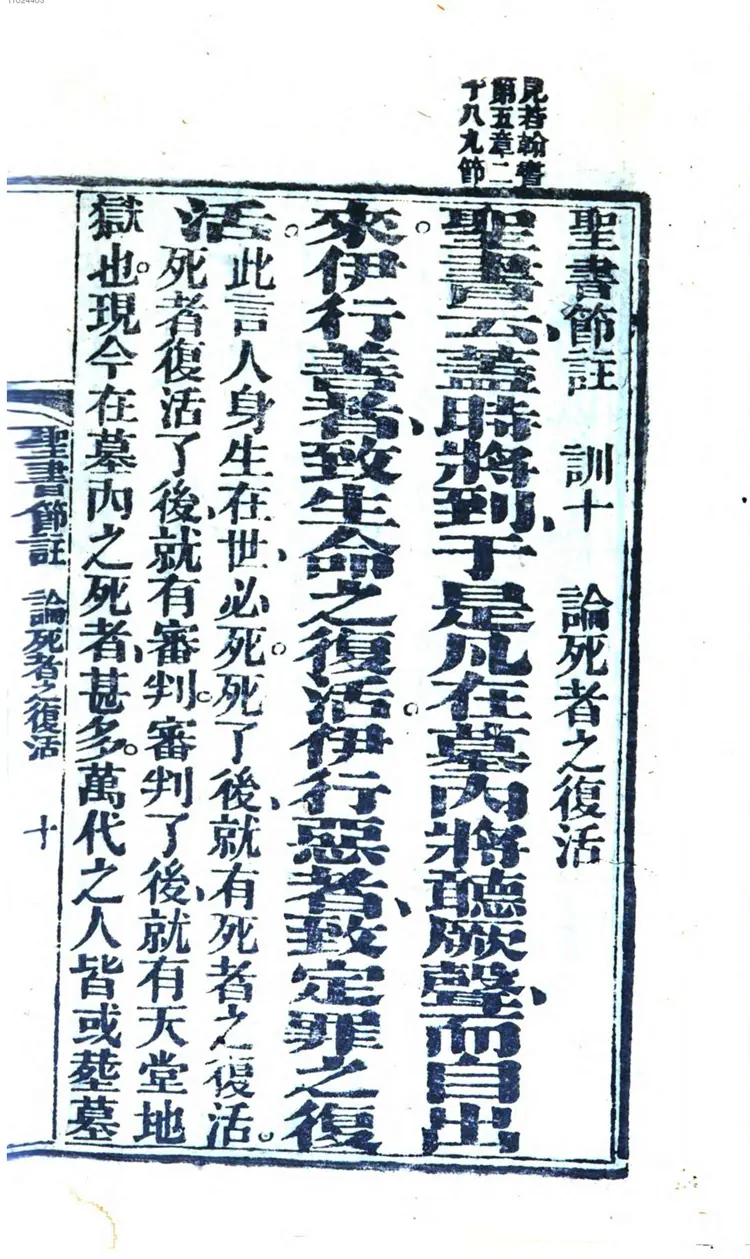 11024403
見若翰書
第五章二
十八九節
聖書節註 訓十 論死者之復活
聖書云、蓋時將到、于是凡在墓內將聽厥聲、而自出
來。伊行善者、致生命之復活。伊行惡者、致定罪之復
活。
此言人身生在世、必死。死了後、就有死者之復活。
死者復活了後、就有審判。審判了後、就有天堂地
獄也。現今在墓內之死者、甚多。萬代之人皆或塟墓
聖書節註 論死者之復活 十